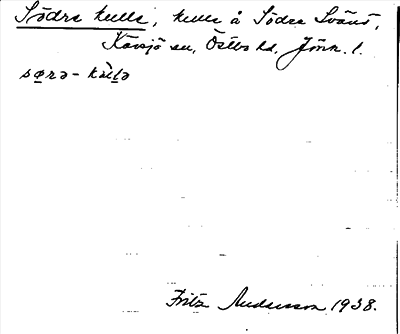 Södra kulle, kulle å Södra Svänö,
Kävsjö sn, Östbo hd, Jönk. l.
sørə - kulə
Fritz Andersson 1938.